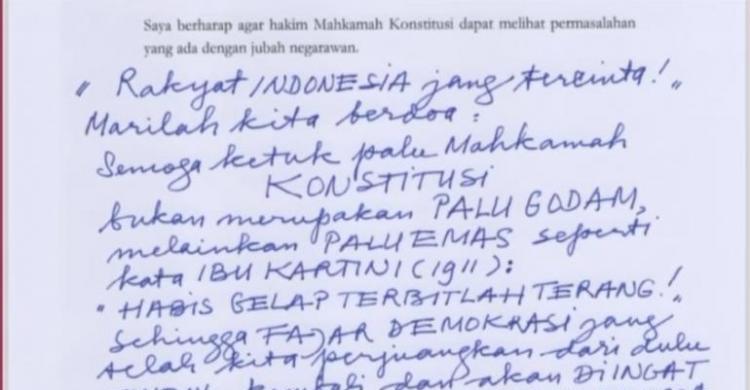 Saya berharap agar hakim Mahkamah Konstitusi dapat melihat permasalahan
yang ada dengan jubah negarawan.
" Rakyat INDONESIA jang tercinta! "
Marilah kita berdoa :
Semoga ketuk palu Mahkamah
KONSTITUSI
bukan merupakan PALU GODAM,
melainkan PALU EMAS seperti
kata IBU KARTINI (1911):
" HABIS GELAP TERBITLAH TERANG! "
Sehingga FAJAR DEMOKRASI jang
telah kita perjuangkan dari dulu
kembali dan akan DiINGAT